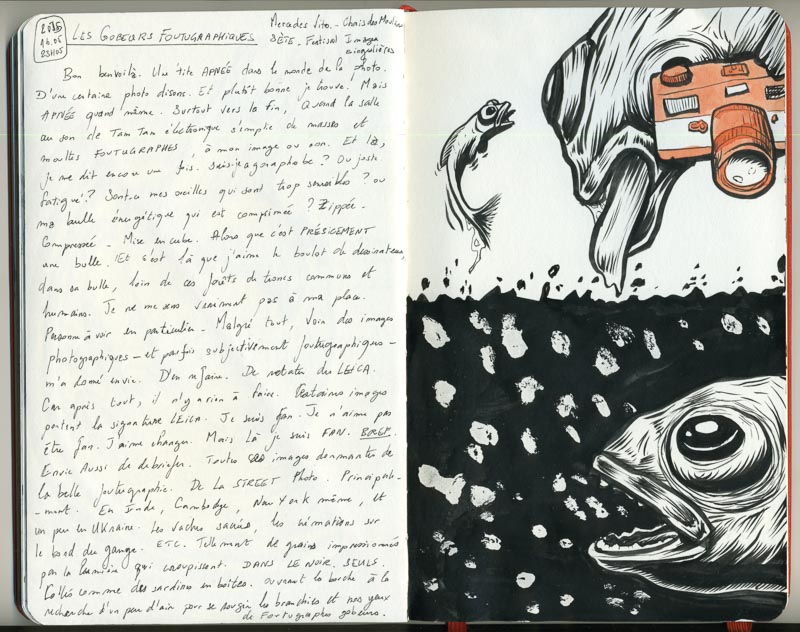 2015
16.05
23H05
LES GOBEURS FOUTUGRAPHIQUES
Mercedes Vito - Chais des Moulins
SÈTE. Festival Images
singulières
Bon benvoilà. Une 'tite APNÉE dans le monde de la photo.
D'une certaine photo disons. Et plutôt bonne je trouve. Mais
APNÉE quand même. Surtout vers la fin, Quand la salle
au son de Tam Tam électronique s'emplie de masses et
moultes FOUTUGRAPHES, à mon image ou non. Et là,
je me dit encore une fois. suis-je agoraphobe? Ou juste
fatigué? Sont-ce mes oreilles qui sont trop sensibles? ou
ma bulle énergétique qui est comprimée? Zippée -
Compressée - Mise en cube. Alors que c'est PRÉSICEMENT
une bulle. Et c'est là que j'aime le boulot de dessinateur,
dans sa bulle, loin de ces forêts de troncs communs et
humains. Je ne me sens vraiment pas à ma place.
Personne à voir en particulier - Malgré tout, Voir des images
photographiques - et parfois subjectivement foutugraphiques -
m'a donné envie. D'en refaire. De retater du LEICA.
Car après tout, il n'y a rien à faire. Certaines images
portent la signature LEica. Je suis fan. Je n'aime pas
être fan. J'aime changer. Mais Là je suis FAN. BREF.
Envie Aussi de debriefer. Toutes ces images dormantes de
la belle foutugraphie. De La STREET Photo. Principale-
-ment. En Inde, Cambodge, New York même, et
un peu en UKraine. Les vaches sacrées, les crémations sur
le bord du gange. ETC. Tellement de grains impressionnés
par la lumière qui croupissent. DANS LE NOIR. SEULS.
Collés comme des sardines en boites. ouvrant la bouche à la
recherche d'un peu d'air pour se rougir les branchies et nos yeux
de Foutugraphes gobeurs.